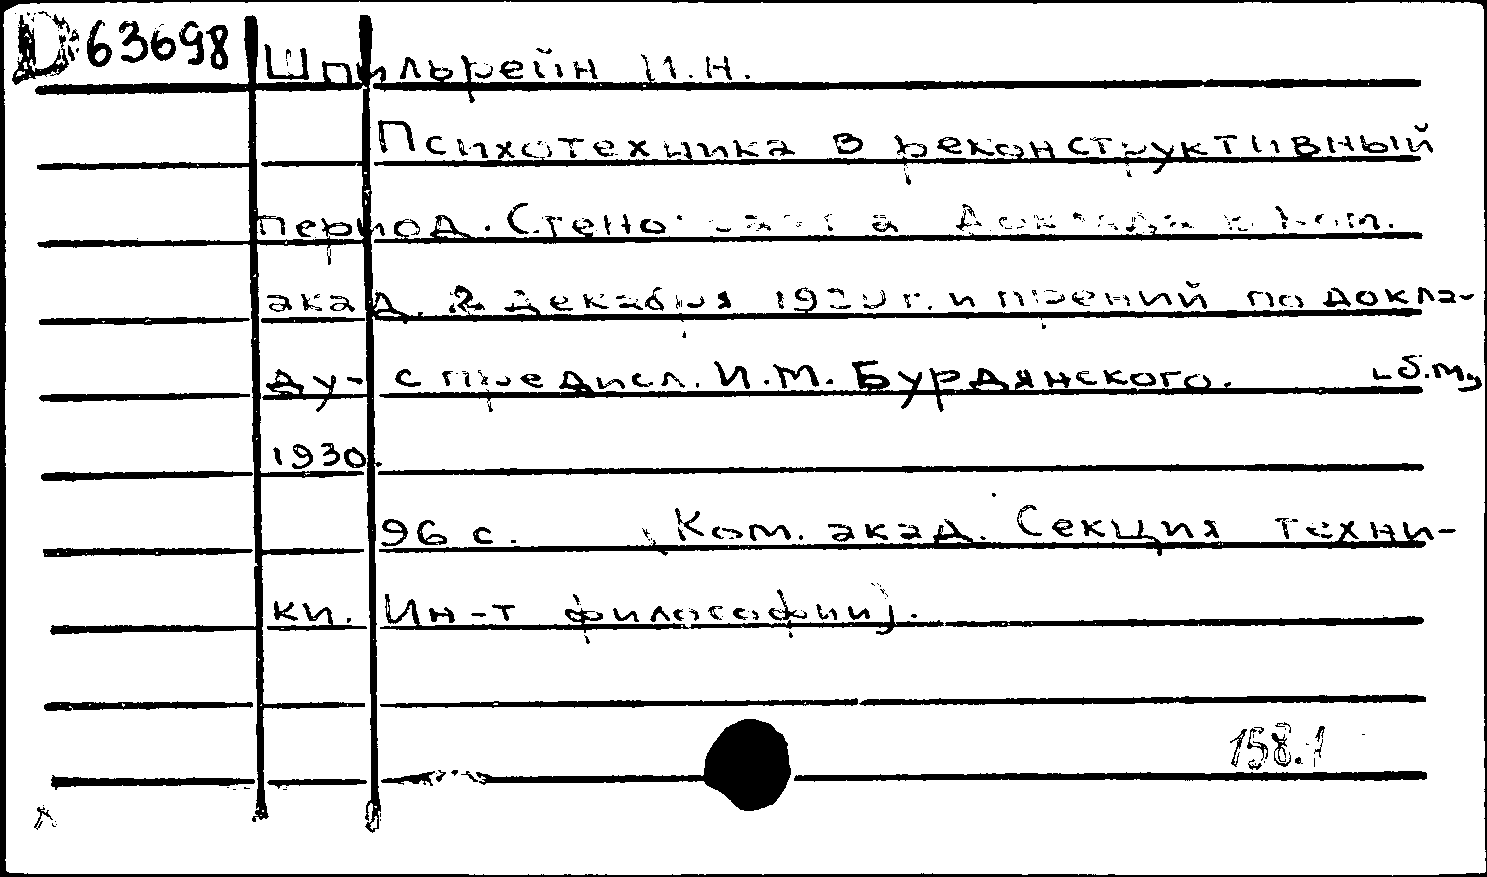 D 63698 Шпильрейн И.Н.
Психотехника в реконструктивный
период. Стенограмма доклада в Ком.
акад. 2 декабря 19 г. и прений по докла-
ду - с предисл. И.М. Бурдянского. [б.м],
1930.
96 с. (Ком. акад. Секция техни-
ки. Ин-т философии).
158.1